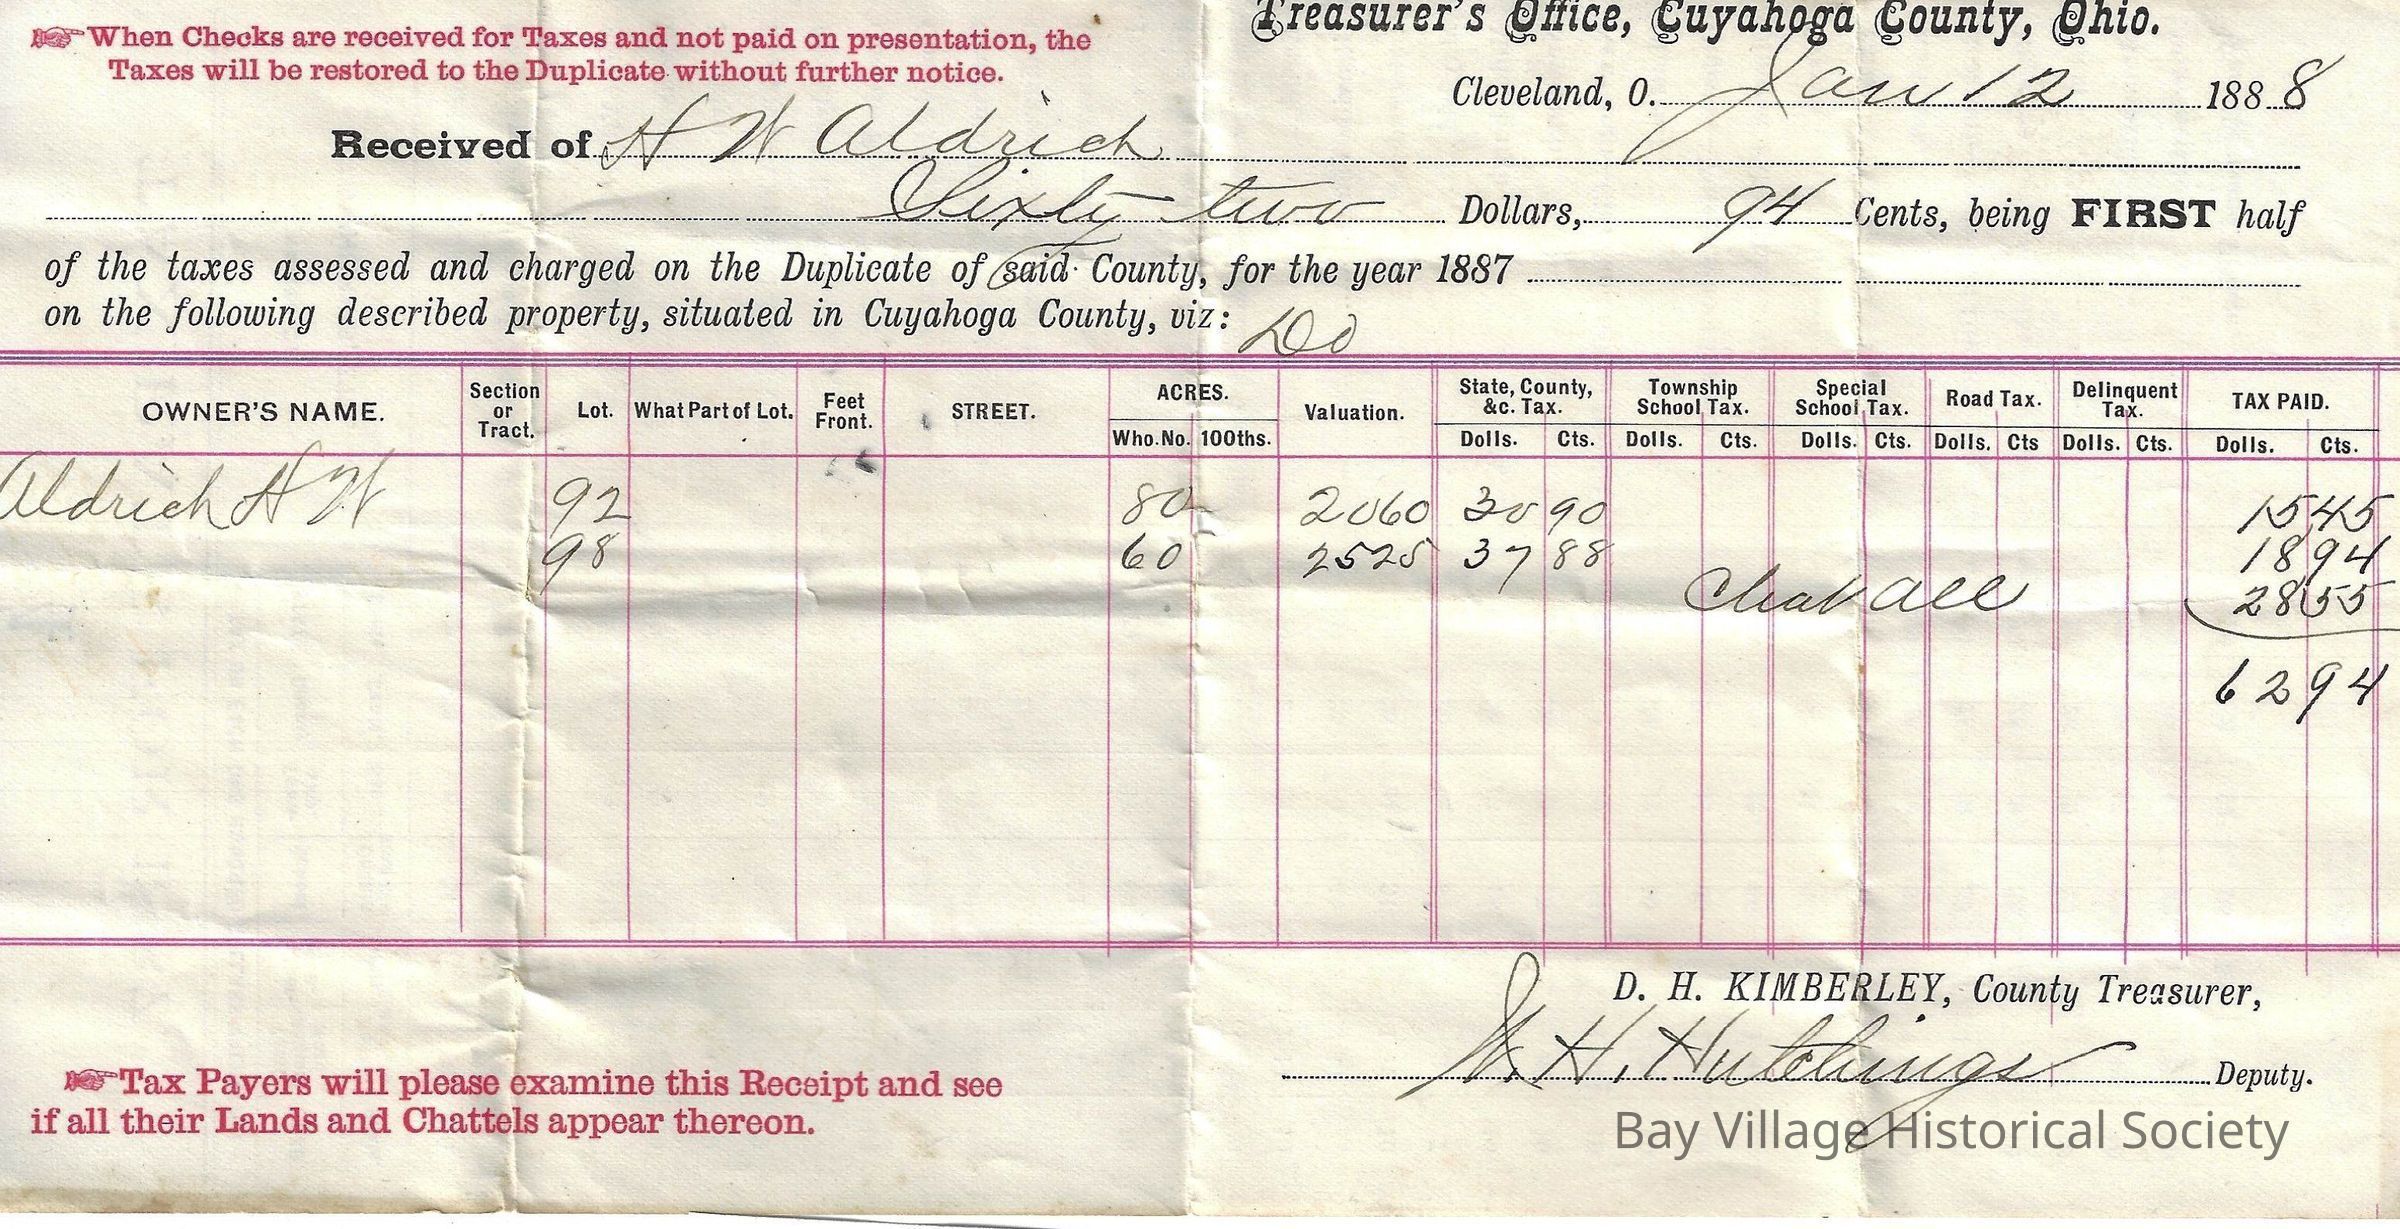 Treasurer's Office, Cuyahoga County, Ohio.
When Checks are received for Taxes and not paid on presentation, the
Taxes will be restored to the Duplicate without further notice.
Cleveland, O. Jan 12 1888
Received of H W Aldrich
Sixty two Dollars, 94 Cents, being FIRST half
of the taxes assessed and charged on the Duplicate of said County, for the year 1887
on the following described property, situated in Cuyahoga County, viz: Do
OWNER'S NAME. Section or Tract. Lot. What Part of Lot. Feet Front. STREET. ACRES. Valuation. State, County, &c. Tax. Township School Tax. Special School Tax. Road Tax. Delinquent Tax. TAX PAID.
Who. No. 100ths. Dolls. Cts. Dolls. Cts. Dolls. Cts. Dolls. Cts Dolls. Cts. Dolls. Cts.
Aldrich H W 92 80 2060 30 90 15 45
98 60 2525 37 88 18 94
Chat all 28 55
62 94
D. H. KIMBERLEY, County Treasurer,
W. H. Hutchings Deputy.
Tax Payers will please examine this Receipt and see
if all their Lands and Chattels appear thereon.
Bay Village Historical Society